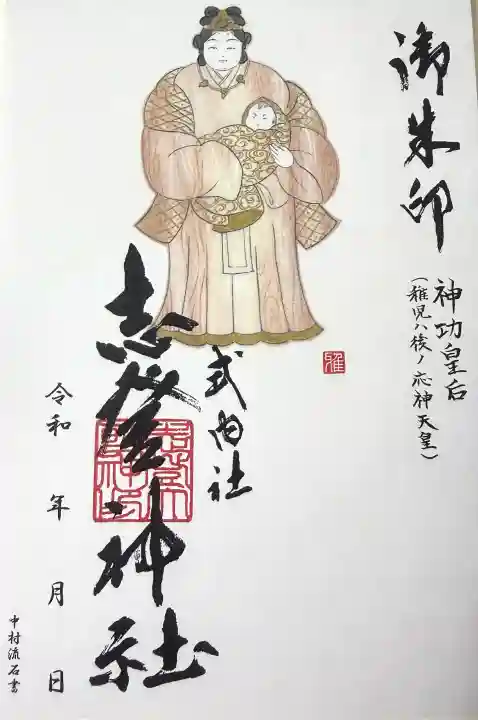 御朱印
神功皇后
(稚児ハ後ノ応神天皇)
雅
式内社
志登神社
令和 年 月 日
中村流石書